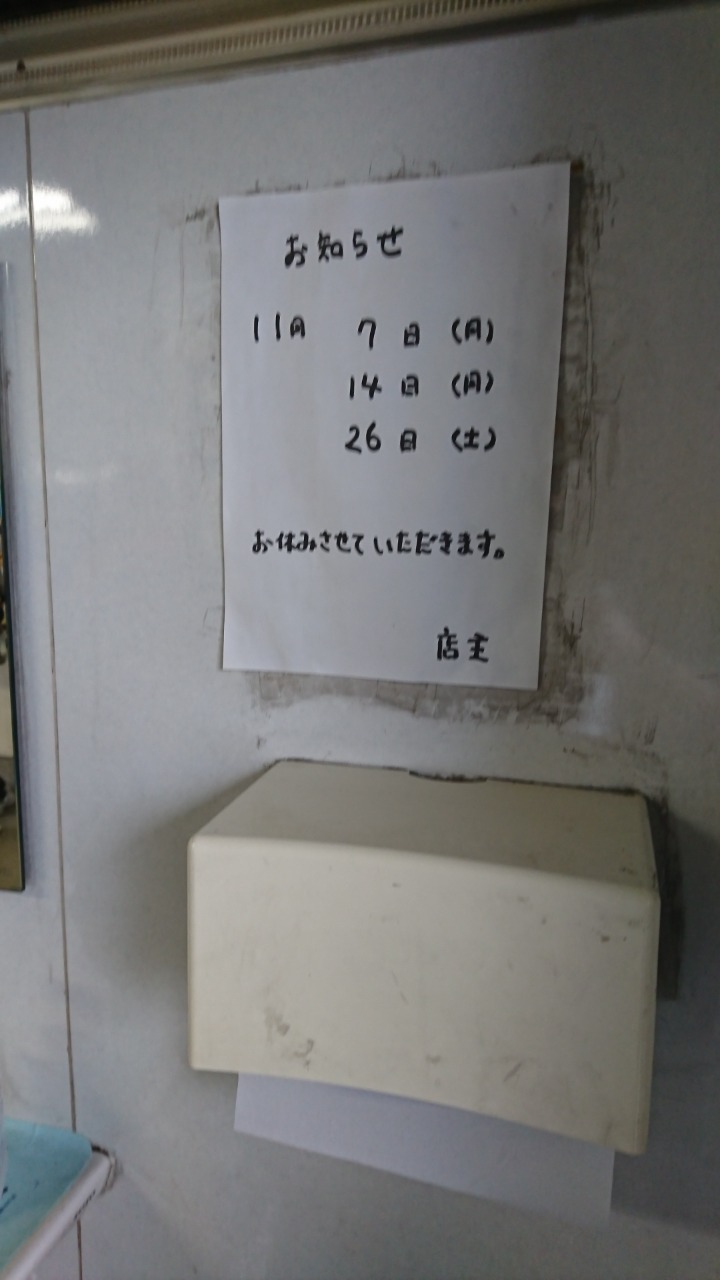 お知らせ
11月 7日(月)
14日(月)
26日(土)
お休みさせていただきます。
店主